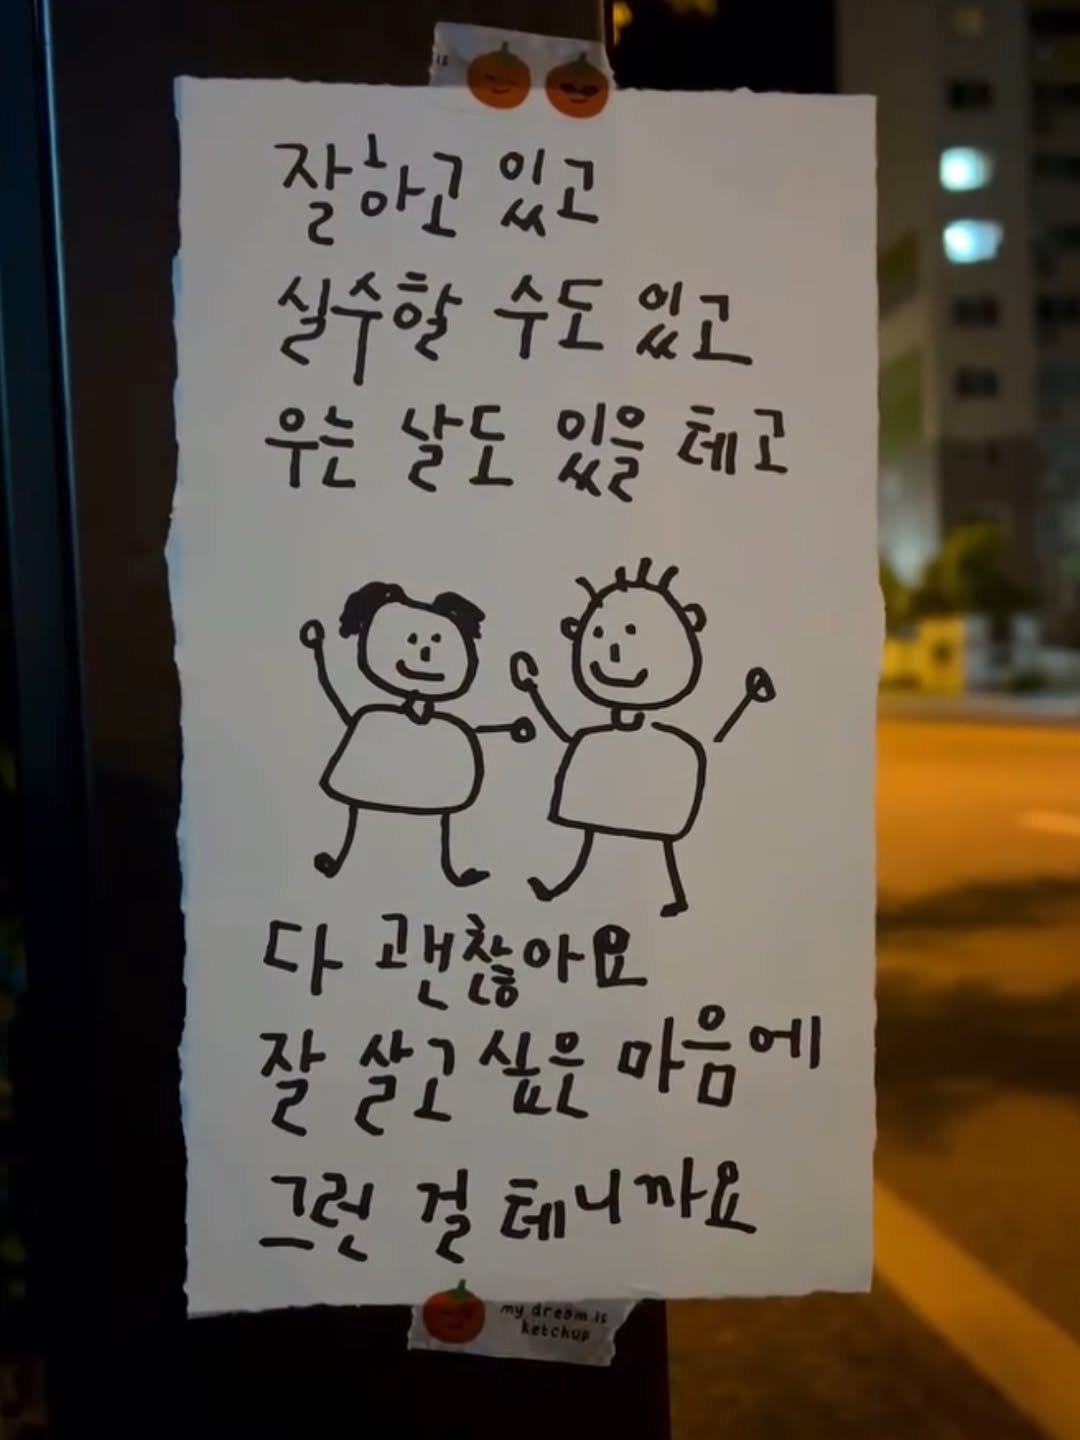 is
잘하고 있고
실수할 수도 있고
우는 날도 있을 테고
다 괜찮아요
잘 살고 싶은 마음에
그런 걸 테니까요
my dream is
ketchup